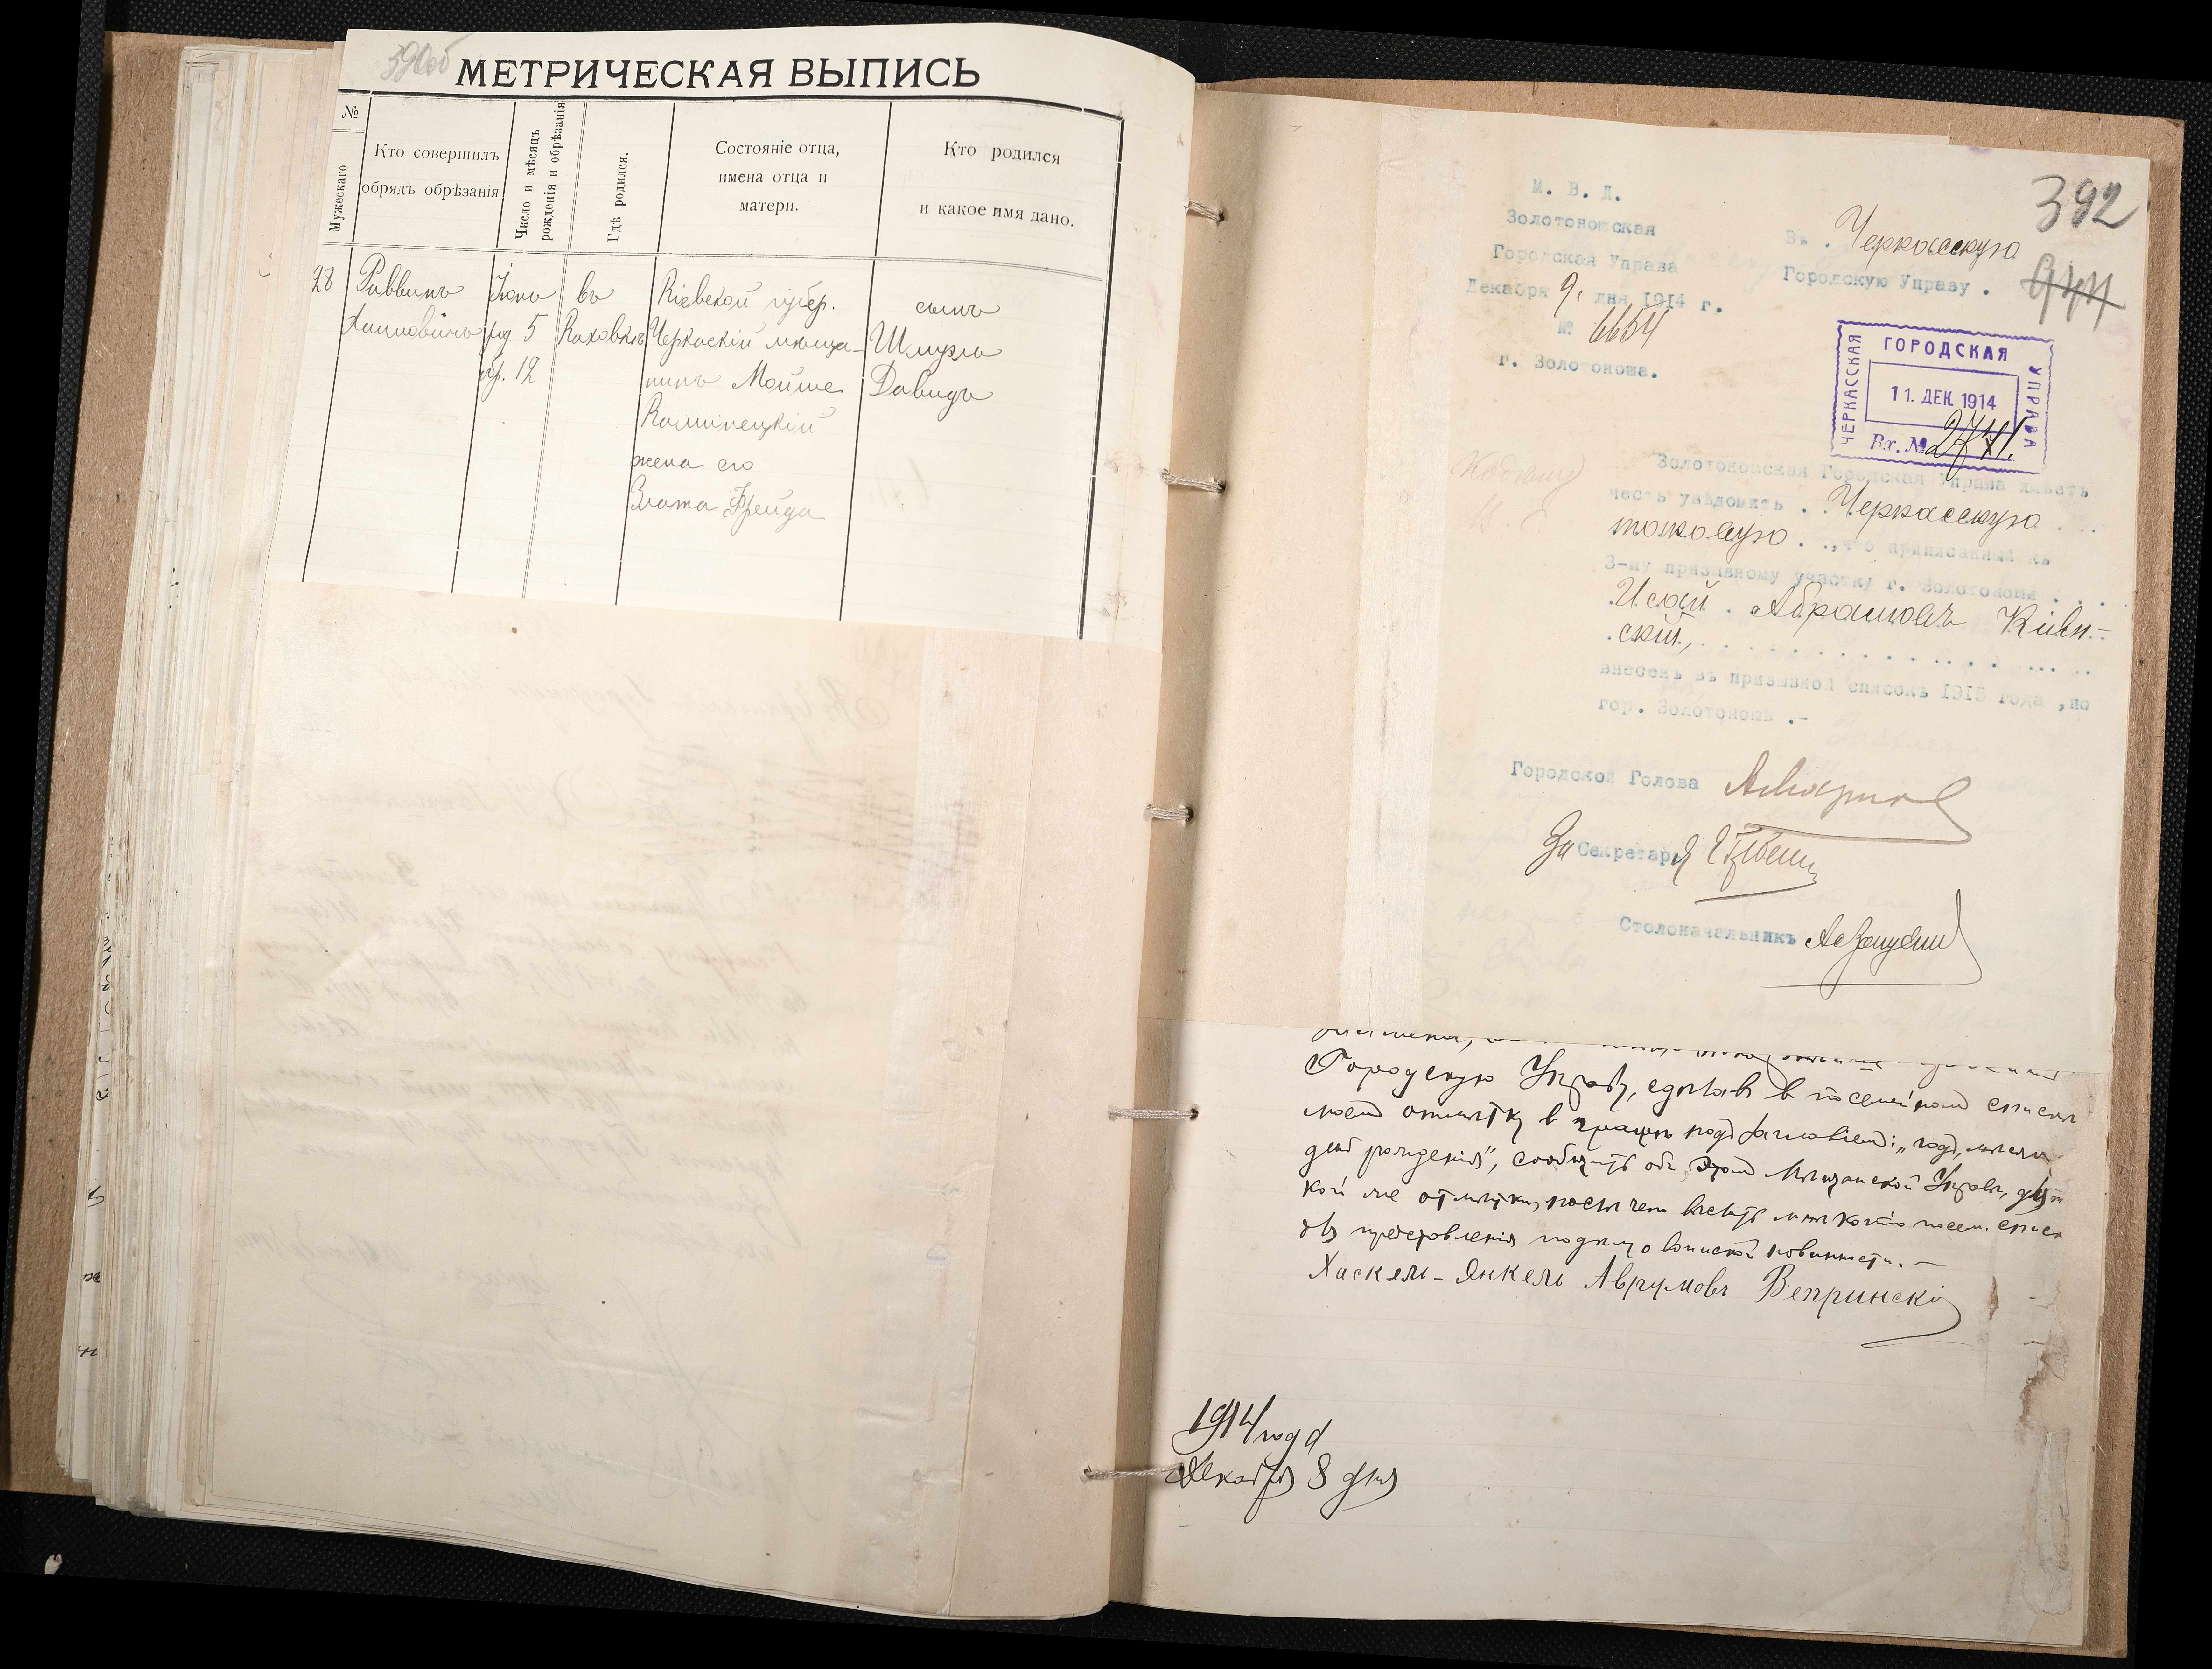 390об
МЕТРИЧЕСКАЯ ВЫПИСЬ
№
Мужескаго
Кто совершилъ
обрядъ обрѣзанія
Число и мѣсяцъ
рожденія и обрѣзанія
Гдѣ родился.
Состояніе отца,
имена отца и
матери.
Кто родился
и какое имя дано.
28
Раввинъ
Хаимовичъ
Іюнь
род. 5
обр. 12
въ
Каховкѣ
Кіевской губер.
Черкаскій мѣща-
нинъ Мойше
Каминецкій
жена его
Злата Фрейда
сынъ
Шмуэль
Давидъ
392
944
М. В. Д.
Золотоношская
Городская Управа
Декабря 9. дня 1914 г.
№ 6654
г. Золотоноша.
Въ . Черкасскую
Городскую Управу .
ЧЕРКАССКАЯ ГОРОДСКАЯ УПРАВА
11. ДЕК. 1914
Вх. № 2771.
Золотоношская Городская Управа имѣетъ
честь увѣдомить . Черкасскую . . .
таковую . ., что приписанный къ
3-му призывному участку г. Золотоноши . . .
Исай . Абрамовъ Кіевн-
скій, . . . . . . . . . . . . . . . . .
внесенъ въ призывной списокъ 1915 года ,по
гор. Золотоношѣ .-
Городской Голова
За Секретаря
Столоначальникъ
Городскую Управу, сдѣлавъ в посемейном списке
моем отмѣтку в графѣ под заглавіем: „год, мѣсяц
день рожденія", сообщить об этом Мѣщанской Управѣ, для
кой же отмѣтки, послѣ чего выслать мнѣ копію посем. списк
для представленія подлежащ о воинской повинности. —
Хаскель-Янкель Аврумовъ Вепринскій
1914 года
Декабря 8 дня